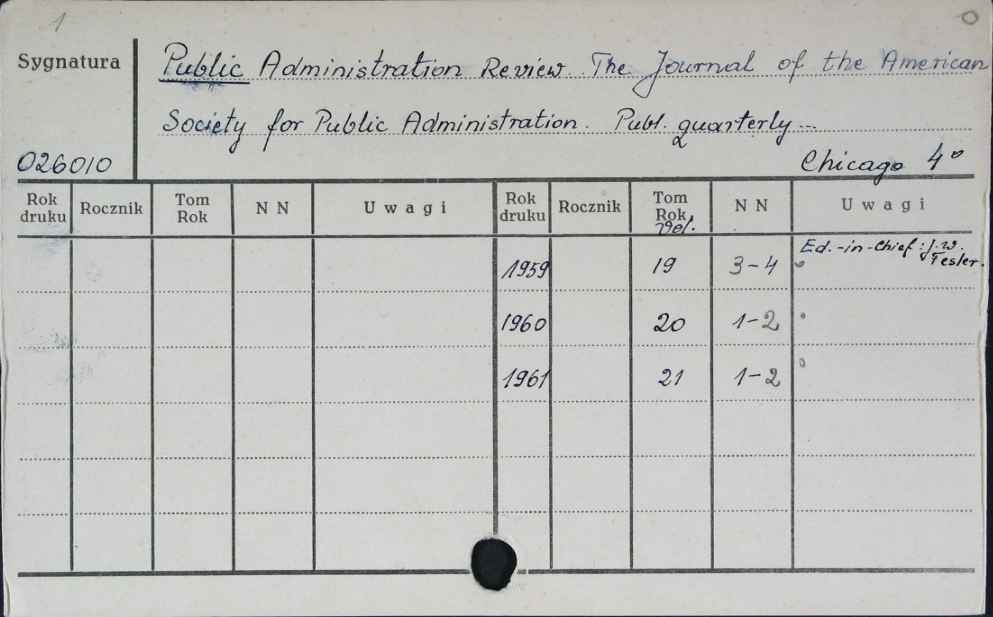 1
Sygnatura
Public Administration Review. The Journal of the American
Society for Public Administration. Publ. quarterly --
026010
Chicago 4°
Rok druku Rocznik Tom Rok N N Uwagi Rok druku Rocznik Tom Rok Vol. N N Uwagi
1959 19 3-4 Ed.-in-Chief: J.W. Fesler.
1960 20 1-2
1961 21 1-2